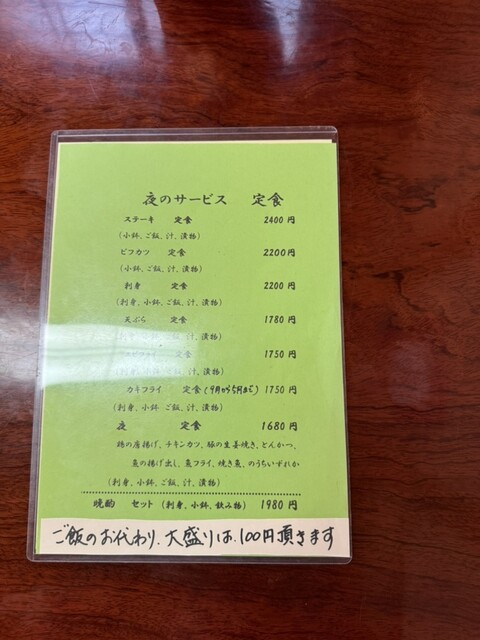 夜のサービス 定食
ステーキ 定食 2400円
(小鉢、ご飯、汁、漬物)
ビフカツ 定食 2200円
(小鉢、ご飯、汁、漬物)
刺身 定食 2200円
(刺身、小鉢、ご飯、汁、漬物)
天ぷら 定食 1780円
(刺身、小鉢、ご飯、汁、漬物)
定食 1750円
(刺身、小鉢、ご飯、汁、漬物)
カキフライ 定食(9月から5月まで) 1750円
(刺身、小鉢 ご飯、汁、漬物)
夜 定食 1680円
鶏の唐揚げ、チキンカツ、豚の生姜焼き、とんかつ、
魚の揚げ出し、魚フライ、焼き魚、のうちいずれか
(刺身、小鉢、ご飯、汁、漬物)
晩酌 セット (刺身、小鉢、飲み物) 1980円
ご飯のお代わり、大盛りは、100円頂きます